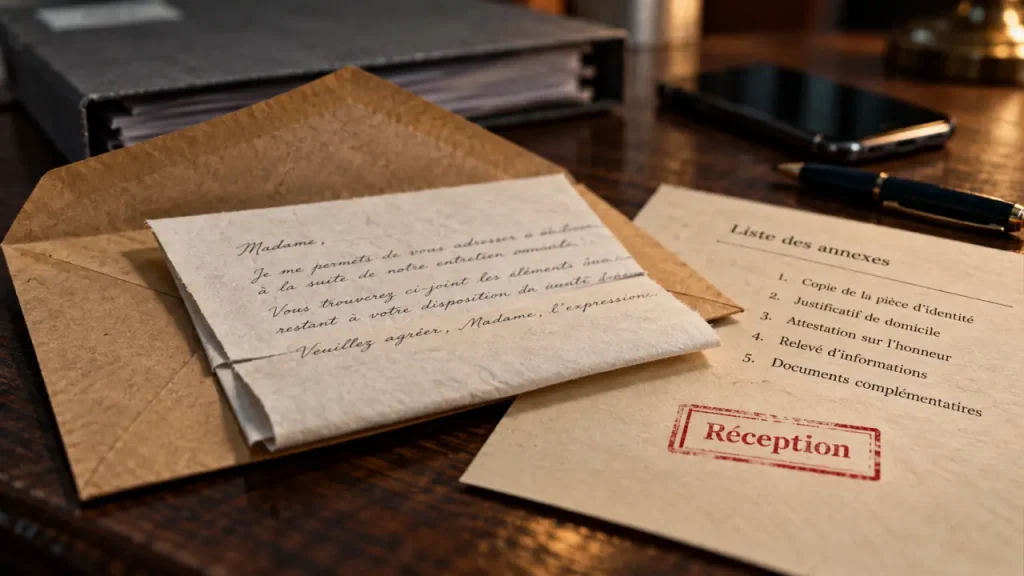 Madame,
Je me permets de vous adresser à
à la suite de notre entretien
Vous trouverez ci-joint les éléments
restant à votre disposition
Veuillez agréer, Madame, l'expression.
Liste des annexes
1. Copie de la pièce d'identité
2. Justificatif de domicile
3. Attestation sur l'honneur
4. Relevé d'informations
5. Documents complémentaires
Réception